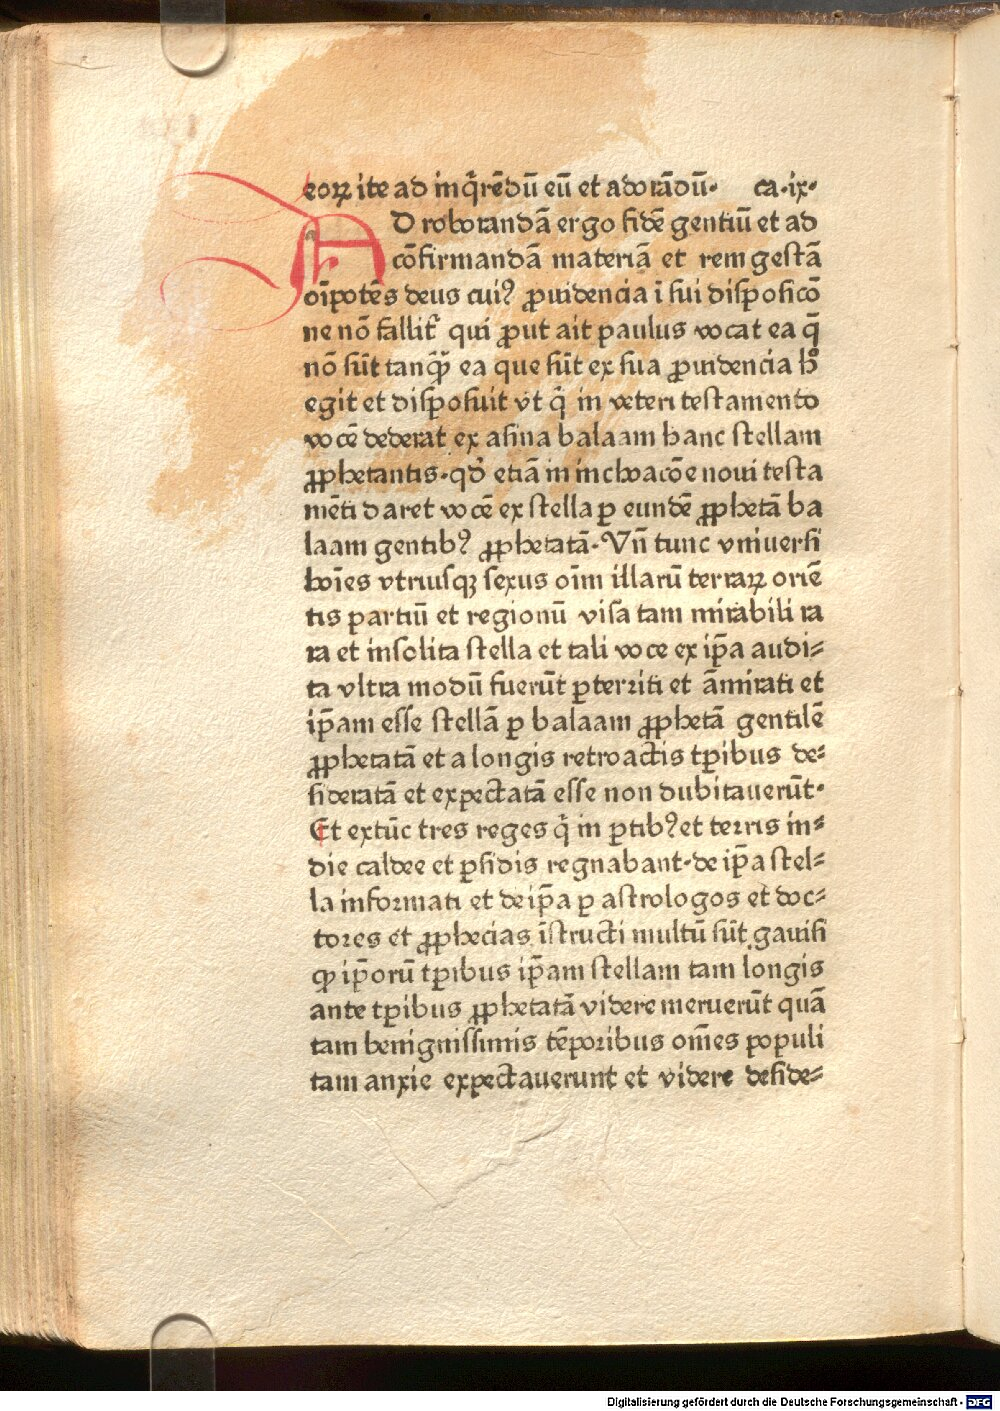 eoꝝ ite ad inq̇rēdū eū et adorādū· ca·ix·
AD roborandā ergo fidē gentiū et ad
cōfirmandā materiā et rem gestā
oīpotēs deus cuiꝰ ꝓuidencia ī sui disposicō
ne nō fallit᷑ qui ꝓut ait paulus vocat ea q̄
nō sūt tanq̄ꝫ ea que sūt ex sua ꝓuidencia hͦ
egit et disposuit vt q̇ in veteri testamento
vocē dederat ex asina balaam hanc stellam
ꝓphetantis·qd̕ etiā in inchoacōe noui testa
mēti daret vocē ex stella ꝑ eundē ꝓphetā ba
laam gentibꝰ ꝓphetatā·Vn̄ tunc vniuersi
hoīes vtriusqꝫ sexus oīm illarū terraꝝ oriē
tis partiū et regionū visa tam mirabili ra
ra et insolita stella et tali voce ex ip̄a audi⸗
ta vltra modū fuerūt ꝑterriti et āmirati et
ip̄am esse stellā ꝑ balaam ꝓphetā gentilē
ꝓphetatā et a longis retroactis tp̄ibus de⸗
sideratā et expectatā esse non dubitauerūt·
Et extūc tres reges q̇ in ꝑtibꝰ et terris in⸗
die caldee et ꝑsidis regnabant·de ip̄a stel⸗
la informati et de ip̄a ꝑ astrologos et doc⸗
tores et ꝓphecias īstructi multū sūt gauisi
ꝙ ip̄orū tp̄ibus ip̄am stellam tam longis
ante tp̄ibus ꝓphetatā videre meruerūt quā
tam benignissimis tēporibus om̄es populi
tam anxie expectauerunt et videre deside⸗
Digitalisierung gefördert durch die Deutsche Forschungsgemeinschaft - DFG